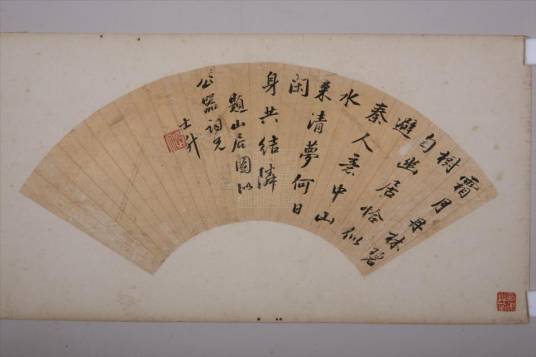 霜月丹林碧
樹
勻幽居恰似
避
秦人意中山
水
來清夢何日
閑
身共結隣
題山居圖似
公器詞兄
士升